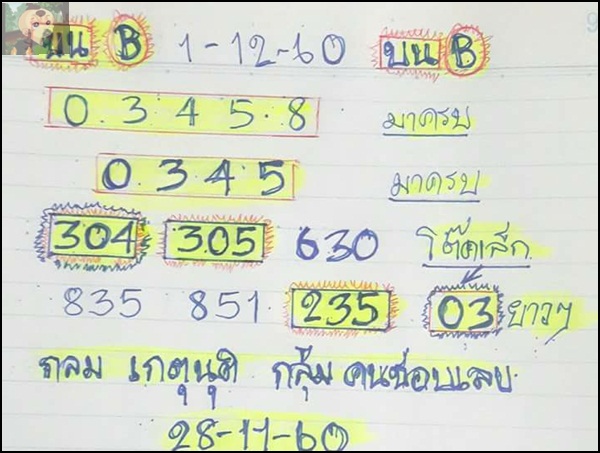 บน B 1-12-60 บน B
0.3.4.5.8 มาครบ
0.3.4.5 มาครบ
304 305 630 โต๊ดเล็ก
835 851 235 03 ยาวๆ
ถลม เกตุนุติ กลุ่ม คนชอบเลข
28-11-60